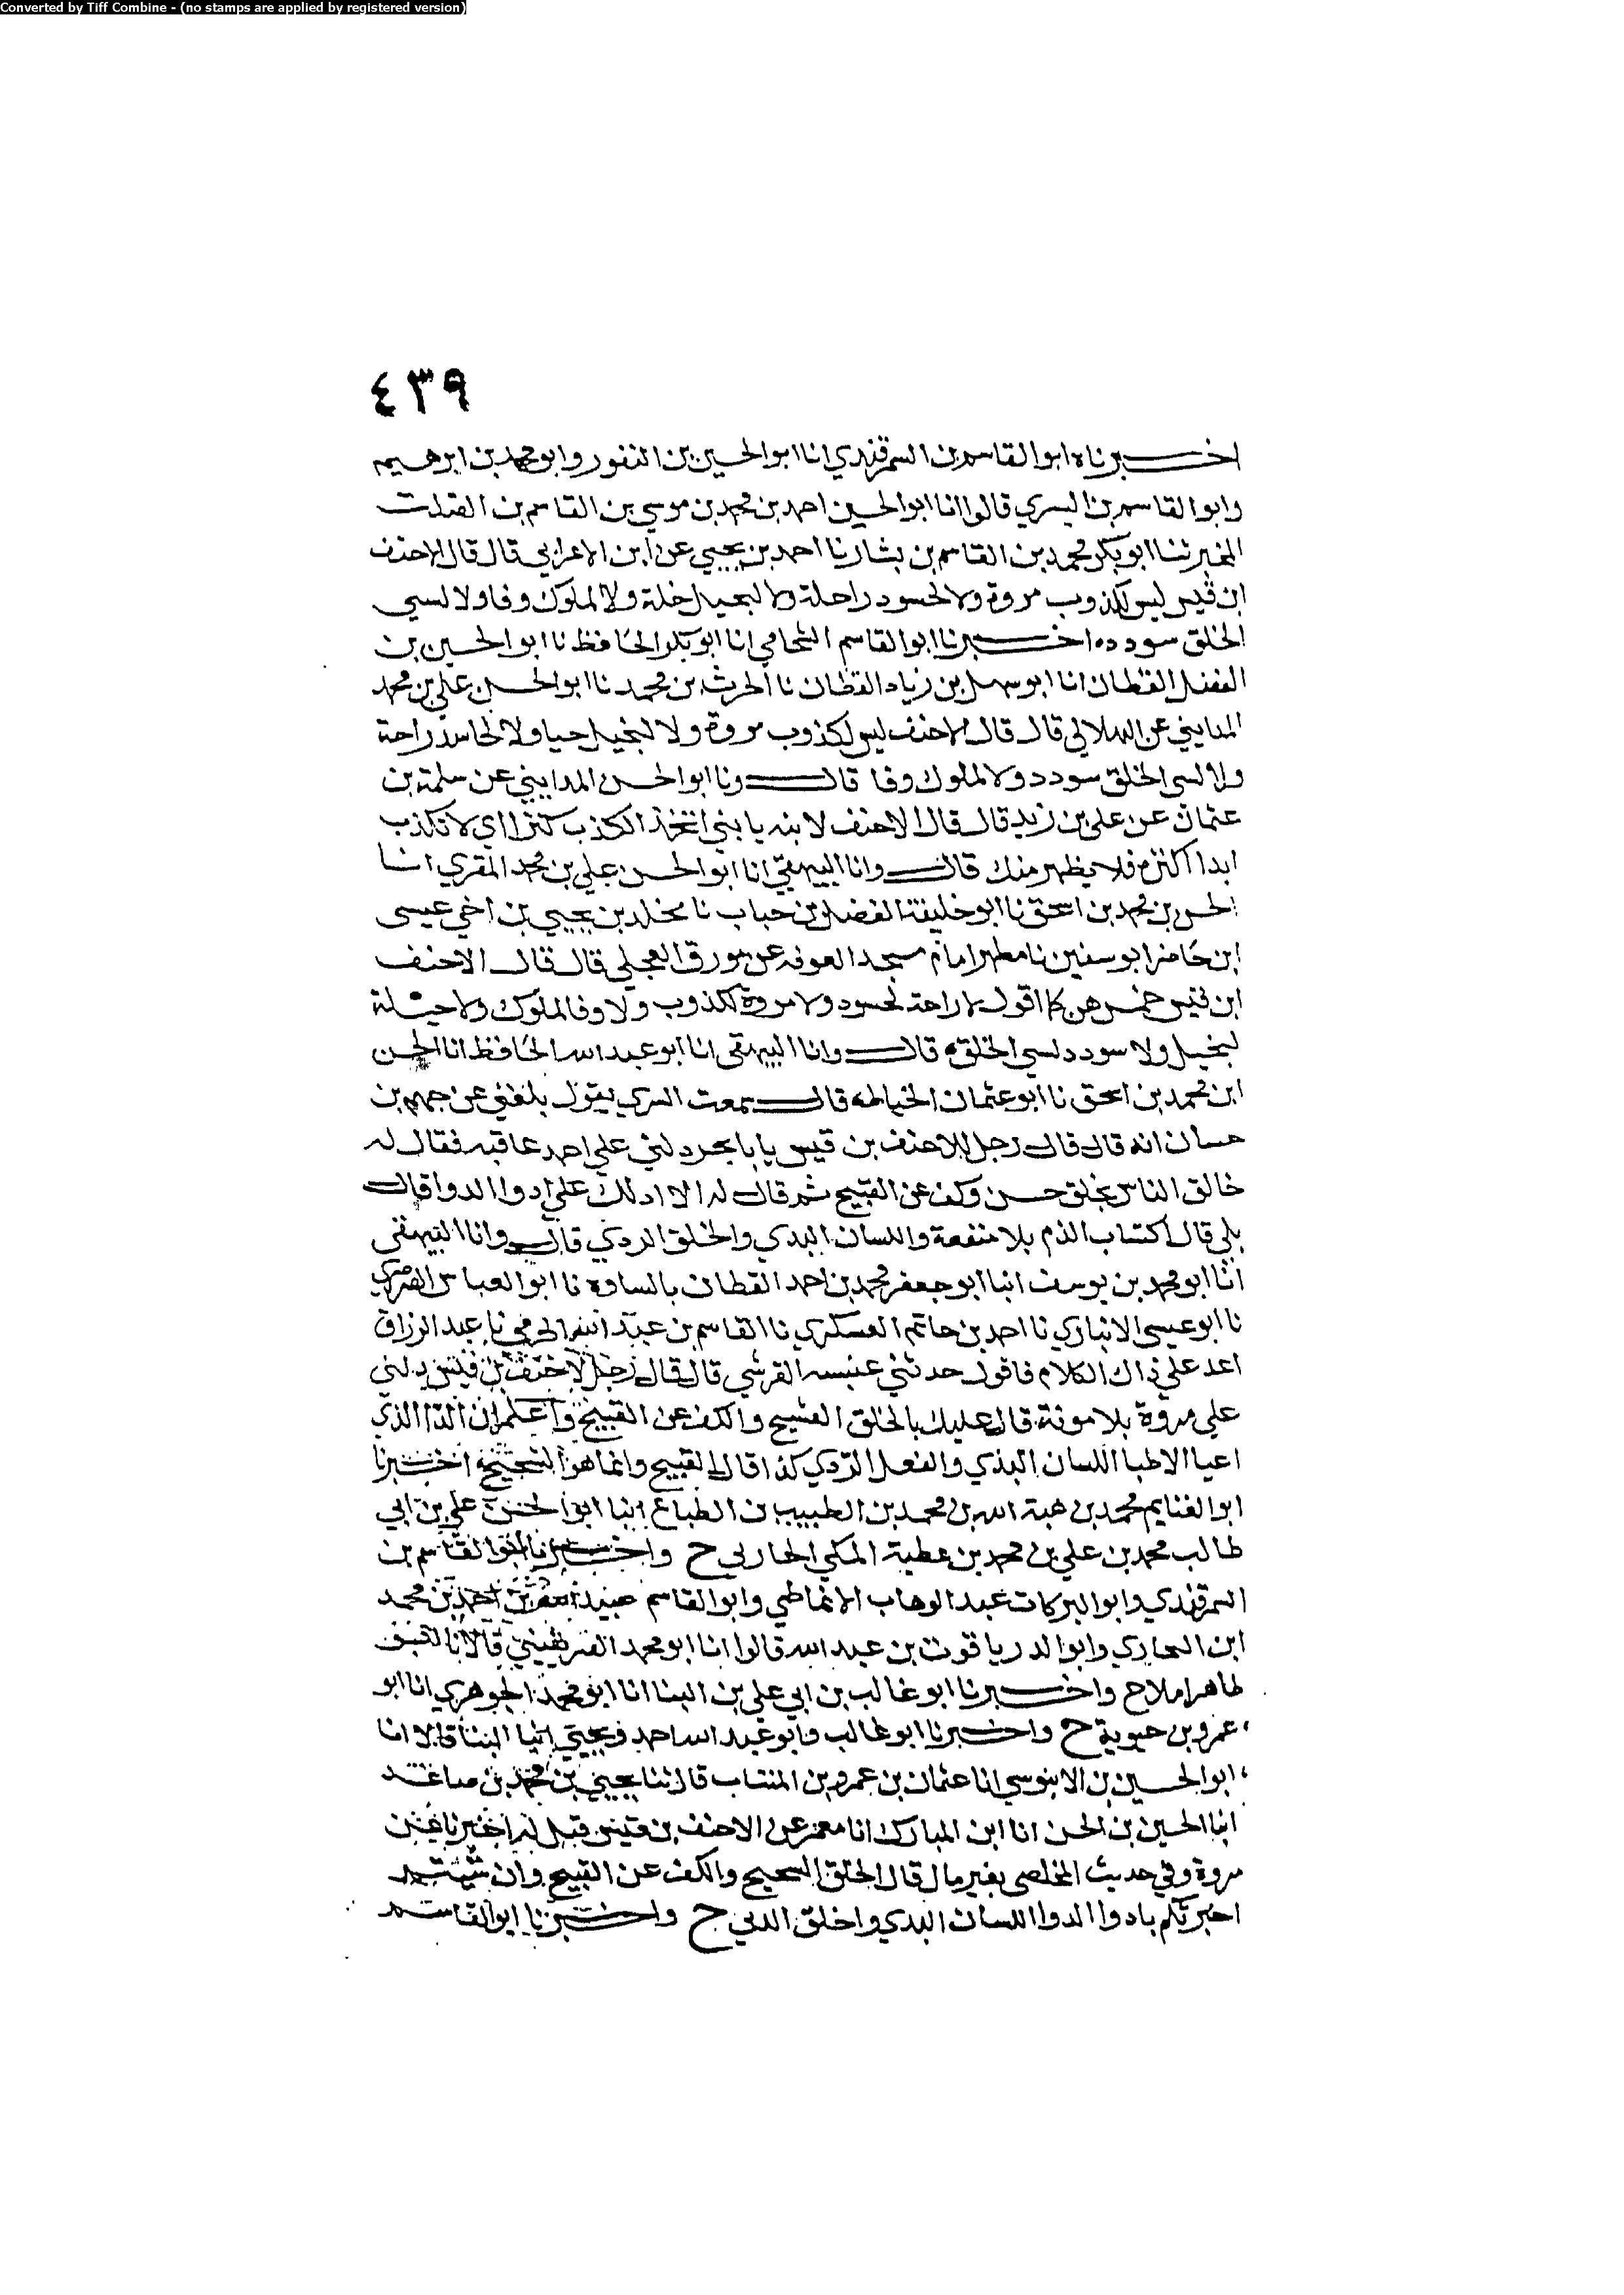 Converted by Tiff Combine - (no stamps are applied by registered version)
٤٣٩
اخبرناه ابوالقاسم بن السمرقندي انا ابوالحسين بن النقور وابومحمد بن ابرهيم
وابوالقاسم بن البسري قالوا انا ابوالحسين احمد بن محمد بن موسي بن القاسم بن الصلت
المخبر ثنا ابوبكر محمد بن القاسم بن بشار نا احمد بن يحيي عن ابن الاعرابي قال قال الاحنف
ابن قيس ليس لكذوب مروة ولا لحسود راحلة ولا لبخيل خلة ولا لملوك وفا ولا لسي
الخلق سودده اخبرنا ابوالقاسم الشحامي انا ابوبكر الحافظ نا ابوالحسين بن
الفضل القطان انا ابوسهل بن زياد القطان نا الحرث بن محمد نا ابوالحسن علي بن محمد
المدايني عن الهلالي قال قال الاحنف ليس لكذوب مروة ولا لبخيل حيا ولا لحاسد راحة
ولا لسي الخلق سودد ولا لملوك وفا قال ونا ابوالحسن المدايني عن سلمة بن
عثمان عن علي بن زيد قال قال الاحنف لابنه يا بني اتخذ الكذب كنزا اي لا تكذب
ابدا اكنزه فلا يظهر منك قال وانا البيهقي انا ابوالحسن علي بن محمد المقري انا
الحسن بن محمد بن اسحق نا ابوخليفة الفضل بن حباب نا مخلد بن يحيي بن اخي عيسى
ابن حاضر ابوسفين نا مطهر امام مسجد العوقه عن مورق العجلي قال قال الاحنف
ابن قيس خمس هن كما اقول لا راحة لحسود ولا مروة لكذوب ولا وفا لملوك ولا حيلة
لبخيل ولا سودد لسي الخلق قال وانا البيهقي انا ابوعبد الله الحافظ انا الحسن
ابن محمد بن اسحق نا ابوعثمان الخياط قال سمعت السري يقول بلغني عن جهم بن
حسان انه قال قال رجل للاحنف بن قيس يا بابحر دلني علي احمد عاقبه فقال له
خالق الناس بخلق حسن وكف عن القبيح ثم قال له الا ادلك علي ادوا الدوا قال
بلي قال اكتساب الذم بلا منفعة واللسان البدي والخلق الردي قال وانا البيهقي
انا ابومحمد بن يوسف انبا ابوجعفر محمد بن احمد القطان بالساوه نا ابوالعباس
نا ابوعيسي الانباري نا احمد بن حاتم العسكري نا القاسم بن عبد الله نا عبد الرزاق
اعد علي ذاك الكلام فاقول حدثني عنبسه القرشي قال قال رجل لاحنف بن قيس دلني
علي مروة بلا مونة قال عليك بالخلق الفسيح والكف عن القبيح واعلم ان الدا الذي
اعيا الاطبا اللسان البذي والفعل الردي كذا قال القبيح وانما هو السجيح اخبرنا
ابوالغنايم محمد بن هبة الله بن محمد بن الطبيب بن الطباع انبا ابوالحسن علي بن ابي
طالب محمد بن علي بن محمد بن عطية المكي الحاربي ح واخبرنا ابوالقاسم بن
السمرقندي وابوالبركات عبد الوهاب الانماطي وابوالقاسم بن احمد بن محمد
ابن البخاري وابوالدر ياقوت بن عبد الله قالوا انا ابومحمد الصريفيني قالا انا
طاهر املاح واخبرنا ابوغالب بن ابي علي بن البنا انا ابومحمد الجوهري انا ابو
عمرو بن حيوية ح واخبرنا ابوغالب وابوعبد الله احمد ويحيي ابنا البنا قالا انا
ابوالحسين بن الابنوسي انا عثمان بن عمرو بن المنتاب قال ثنا يحيي بن محمد بن صاعد
انبا الحسين بن الحسن انا ابن المبارك انا معمر عن الاحنف بن قيس قيل له اخبرنا عن
مروة وفي حديث المخلص بغير مال قال الخلق السجيح والكف عن القبيح وان شئتم
اخبرتكم بادوا الدوا اللسان البدي واخلق الدني ح واخبرنا ابوالقاسم